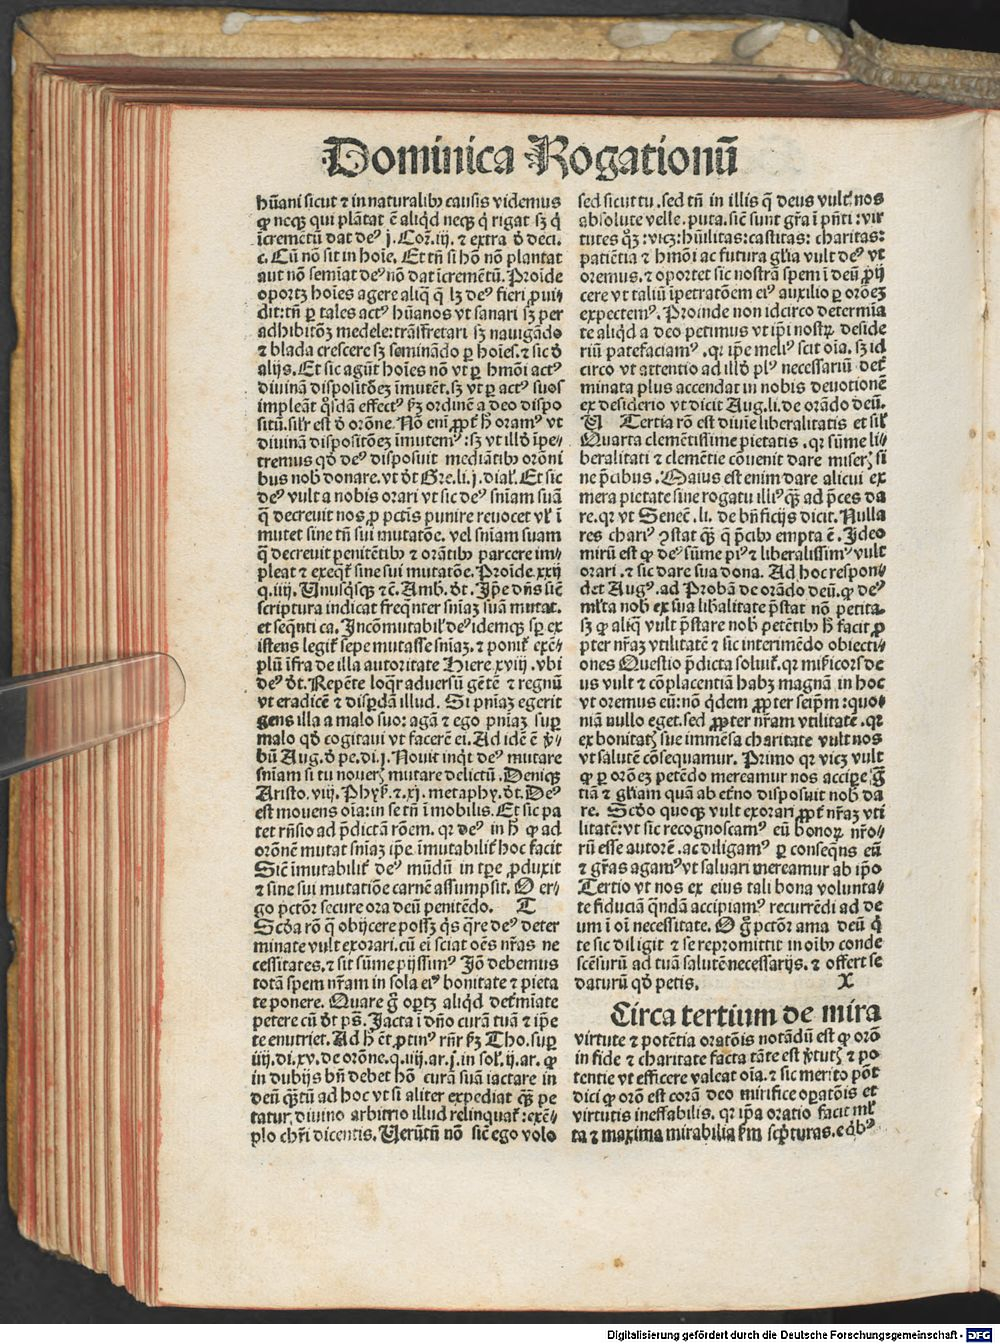 Dominica Rogationũ
hũani sicut ⁊ in naturalibꝫ causis videmus
ꝙ neqꝫ qui plãtat ẽ aliqͥd neqꝫ qͥ rigat sꝫ qͥ
ĩcremẽtũ dat deꝰ j. Coꝝ. iij. ⁊ extra ď deci.
c. Cũ nõ sit in hoĩe. Et tñ si hõ nõ plantat
aut nõ semĩat deꝰ nõ dat ĩcremẽtũ. Proĩde
oportꝫ hoĩes agere aliq̃ q̃ lꝫ deꝰ fieri ꝓui⸗
dit: tñ ꝑ tales actꝰ hũanos vt sanari sꝫ per
adhibitõꝫ medele: trãsfretari sꝫ nauigãdo
⁊ blada crescere sꝫ seminãdo ꝑ hoĩes. ⁊ sic ď
alijs. Et sic agũt hoĩes nõ vt ꝑ hmõi actꝰ
diuinã dispositõeꝫ ĩmutẽt. sꝫ vt ꝑ actꝰ suos
impleãt qͦsdã effectꝰ ẜꝫ ordinẽ a deo dispo
sitũ. sil'r est ď orõne. Nõ eni ꝓpt̃ h̃ oramꝰ vt
diuinã dispositõeꝫ ĩmutemꝰ: sꝫ vt illď ĩpe⸗
tremus qď deꝰ disposuit mediãtibꝫ orõni
bus nob̃ donare. vt ďt Gre. li. j. dial'. Et sic
deꝰ vult a nobis orari vt sic deꝰ sñiam suã
q̃ decreuit nos ꝓ pctĩs punire reuocet vl' ĩ
mutet sine tñ sui mutatõe. vel sñiam suam
q̃ decreuit penitẽtibꝫ ⁊ orãtibꝫ parcere im⸗
pleat ⁊ exeqͣt̃ sine sui mutatõe. Proĩde. xxij
q. iiij. Unusqͥsqꝫ ⁊c̃. Amb. ďt. Ip̃e dñs sic̃
scriptura indicat freqñter sñiaꝫ suã mutat.
et seq̃nti ca. Incõmutabil' deꝰ idemqꝫ sp̃ ex
istens legit̃ sepe mutasse sñiaꝫ. ⁊ ponit̃ exẽ⸗
plũ ĩfra de illa autoritate Hiere. xviij. vbi
deꝰ ďt. Repẽte loqͣr aduersũ gẽtẽ ⁊ regnũ
vt eradicẽ ⁊ disꝑdã illud. Si pñiaꝫ egerit
gens illa a malo suo: agã ⁊ ego pñiaꝫ suꝑ
malo qď cogitaui vt facerẽ ei. Ad idẽ ẽ v̾⸗
bũ Aug. ď pe. di. j. Nouit inqͥt deꝰ mutare
sñiam si tu noueris mutare delictũ. Deniqꝫ
Aristo. viij. Phyẜ. ⁊. xj. metaphy. ďt. Deꝰ
est mouens oĩa: in se tñ ĩ mobilis. Et sic pa
tet rñsio ad p̃dictã rõem. qꝛ deꝰ in h̃ ꝙ ad
orõnẽ mutat sñiaꝫ ip̃e ĩmutabilit̃ hoc facit
Sic̃ ĩmutabilit̃ deꝰ mũdũ in tp̃e ꝓduxit
⁊ sine sui mutatiõe carnẽ assumpsit. O er⸗
go pctõr secure ora deũ penitẽdo. T
Scďa rõ q̃ obijcere possꝫ qͥs qͣre deꝰ deter
minate vult exorari. cũ ei sciat oẽs nr̃as ne
cessitates. ⁊ sit sũme pijssimꝰ Iõ debemus
totã spem nr̃am in sola eiꝰ bonitate ⁊ pieta
te ponere. Quare g̃ oꝑtꝫ aliqͥd det̃mĩate
petere cũ ďt pš. Iacta ĩ dño curã tuã ⁊ ip̃e
te enutriet. Ad h̃ ẽt ꝓtinꝰ rñr ẜꝫ Tho. suꝑ
iiij. di. xv. de orõne. q. iiij. ar. j. in sol'. ij. ar. ꝙ
in dubijs bñ debet hõ curã suã iactare in
deũ qͣ̃tũ ad hoc vt si aliter expediat qͣꝫ pe
tatur diuino arbitrio illud relinquat̃: exẽ⸗
plo chr̃i dicentis. Uerũtñ nõ sic̃ ego volo
sed sicut tu. sed tñ in illis q̃ deus vult nos
absolute velle. puta. sic̃ sunt gr̃a ĩ pñti: vir
tutes qͦꝫ: vicꝫ: hũilitas: castitas: charitas:
patiẽtia ⁊ hmõi ac futura gl'ia vult deꝰ vt
oremus. ⁊ oportet sic nostrã spem ĩ deũ ꝓij
cere vt taliũ ĩpetratõem eiꝰ auxilio ꝑ orõeꝫ
expectemꝰ. Proinde non idcirco determĩa
te aliqͥd a deo petimus vt ip̃i nostrꝝ deside
riũ patefaciamꝰ. qꝛ ip̃e meliꝰ scit oĩa. sꝫ id
circo vt attentio ad illď plꝰ necessariũ det̃
minata plus accendat in nobis deuotionẽ
ex desiderio vt dicit Aug. li. de orãdo deũ.
V Tertia rõ est diuĩe liberalitatis et sil'
Quarta clemẽtissime pietatis. qꝛ sũme li⸗
beralitati ⁊ clemẽtie cõuenit dare miseris si
ne p̃cibus. Maius est enim dare alicui ex
mera pietate sine rogatu illiꝰ qͣꝫ ad p̃ces da
re. qꝛ vt Senec̃. li. de bñficijs dicit. Nulla
res chariꝰ ꝯstat qͣꝫ q̃ p̃cibꝫ empta ẽ. Ideo
mirũ est ꝙ deꝰ sũme piꝰ ⁊ liberalissimꝰ vult
orari. ⁊ sic dare sua dona. Ad hoc respon⸗
det Augꝰ. ad Probã de orãdo deũ. ꝙ deꝰ
ml'ta nob̃ ex sua lib̃alitate p̃stat nõ petita.
sꝫ ꝙ aliq̃ vult p̃stare nob̃ petẽtibꝫ h̃ facit ꝓ
pter nr̃aꝫ vtilitatẽ ⁊ sic interimẽdo obiecti⸗
ones Questio p̃dicta soluit̃. qꝛ mĩcors de
us vult ⁊ cõplacentiã habꝫ magnã in hoc
vt oremus eũ: nõ qͥdem ꝓpter seip̃m: quo⸗
niã nullo eget. sed ꝓpter nr̃am vtilitatẽ. qꝛ
ex bonitatis sue immẽsa charitate vult nos
vt salutẽ cõsequamur. Primo qꝛ vicꝫ vult
ꝙ ꝑ orõeꝫ petẽdo mereamur nos accipe g̃⸗
tiã ⁊ gl'iam quã ab et̃no disposuit nob̃ da
re. Scďo quoqꝫ vult exorari ꝓpt̃ nr̃aꝫ vti
litatẽ: vt sic recognoscamꝰ eũ bonoꝝ nr̃o⸗
rũ esse autorẽ. ac diligamꝰ ꝑ conseqñs eũ
⁊ gr̃as agamꝰ vt saluari mereamur ab ip̃o
Tertio vt nos ex eius tali bona volunta⸗
te fiduciã qͣndã accipiamꝰ recurrẽdi ad de
um ĩ oĩ necessitate. O g̃ pctõr ama deũ qͥ
te sic diligit ⁊ se repromittit in oĩbꝫ conde
scẽsurũ ad tuã salutẽ necessarijs. ⁊ offert se
daturũ qď petis. X
Circa tertium de mira
virtute ⁊ potẽtia oratõis notãdũ est ꝙ orõ
in fide ⁊ charitate facta tãte est v̾tutis ⁊ po
tentie vt efficere valeat oĩa. ⁊ sic merito põt
dici ꝙ orõ est corã deo mirifice oꝑatõis et
virtutis ineffabilis. qꝛ ip̃a oratio facit ml'
ta ⁊ maxima mirabilia ẜm scp̃turas. e qͥbꝰ
Digitalisierung gefördert durch die Deutsche Forschungsgemeinschaft - DFG